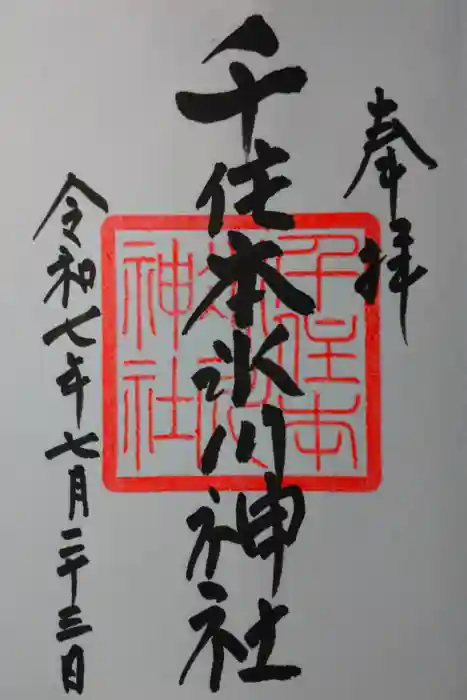 奉拝
千住本氷川神社
千住本
氷川
神社
令和七年七月二十三日